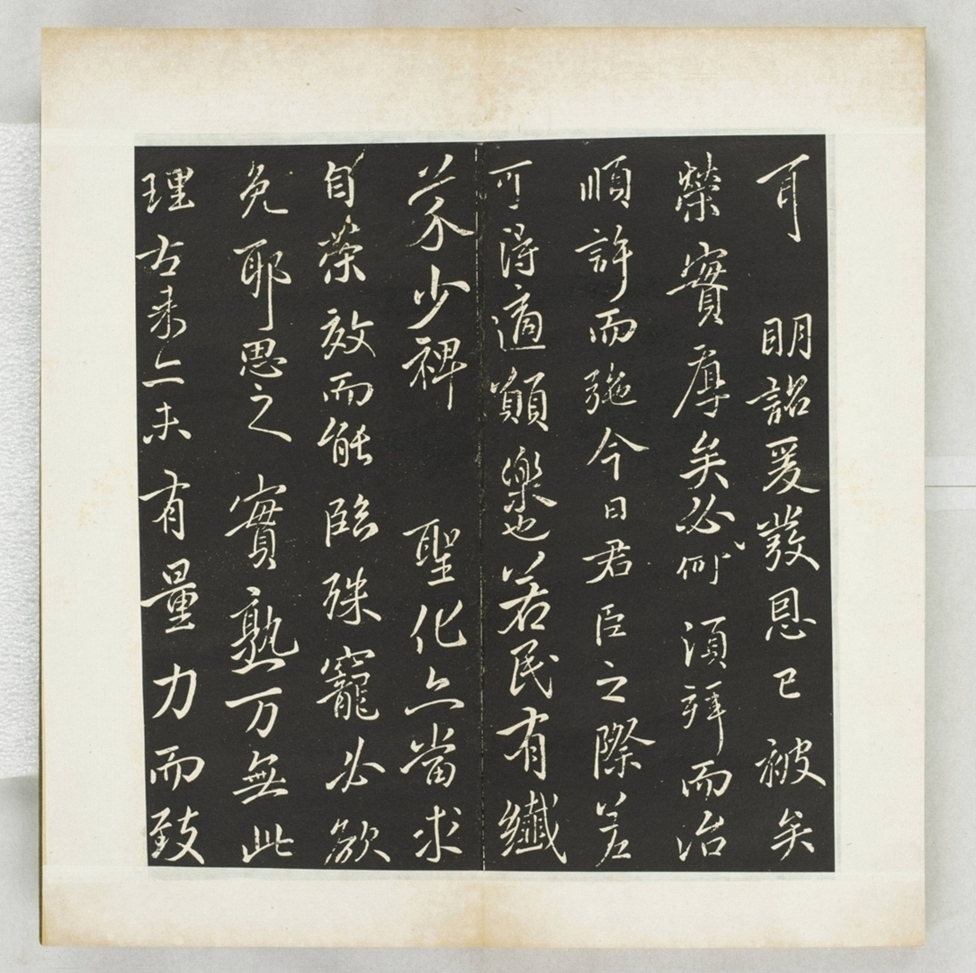 可　明詔爰發恩已被矣
榮實厚矣必何須拜而治
順許而施今日君臣之際差
可得適願樂也若民有纖
芥少裨　聖化亦當求
自榮效而能臨殊寵必欲
免耶思之實熟万無此
理古来亦未有量力而致